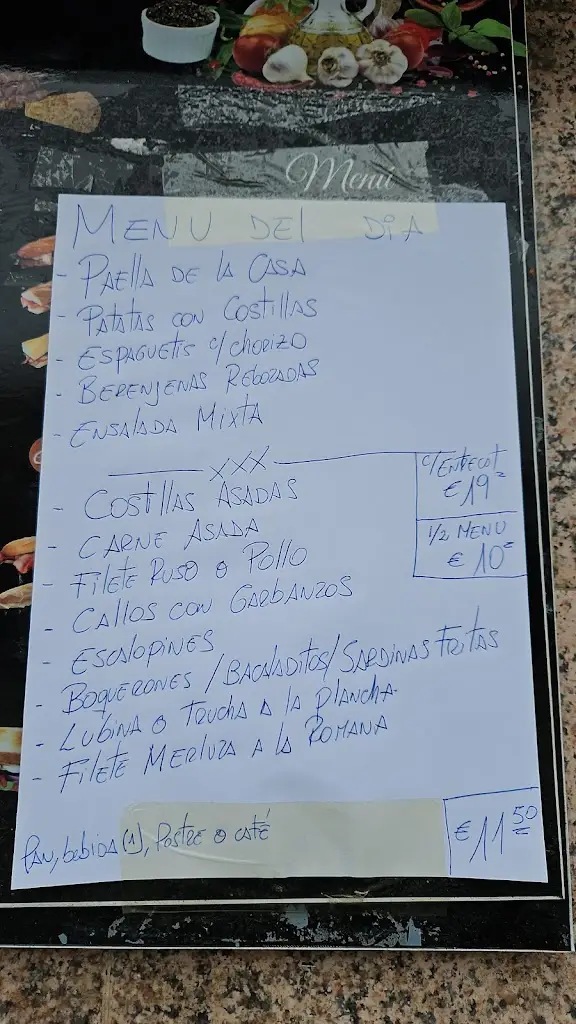 Menú
MENU DEL DIA
- PAELLA DE LA CASA
- PATATAS CON COSTILLAS
- ESPAGUETIS C/CHORIZO
- BERENJENAS REBOZADAS
- ENSALADA MIXTA
XXX
C/ENTRECOT
€19=
1/2 MENU
€10=
- COSTILLAS ASADAS
- CARNE ASADA
- FILETE RUSO O POLLO
- CALLOS CON GARBANZOS
- ESCALOPINES
- BOQUERONES/BACALADITOS/SARDINAS FRITAS
- LUBINA O TRUCHA A LA PLANCHA
- FILETE MERLUZA A LA ROMANA
PAN, bebida (1), POSTRE O CAFÉ
€11 50